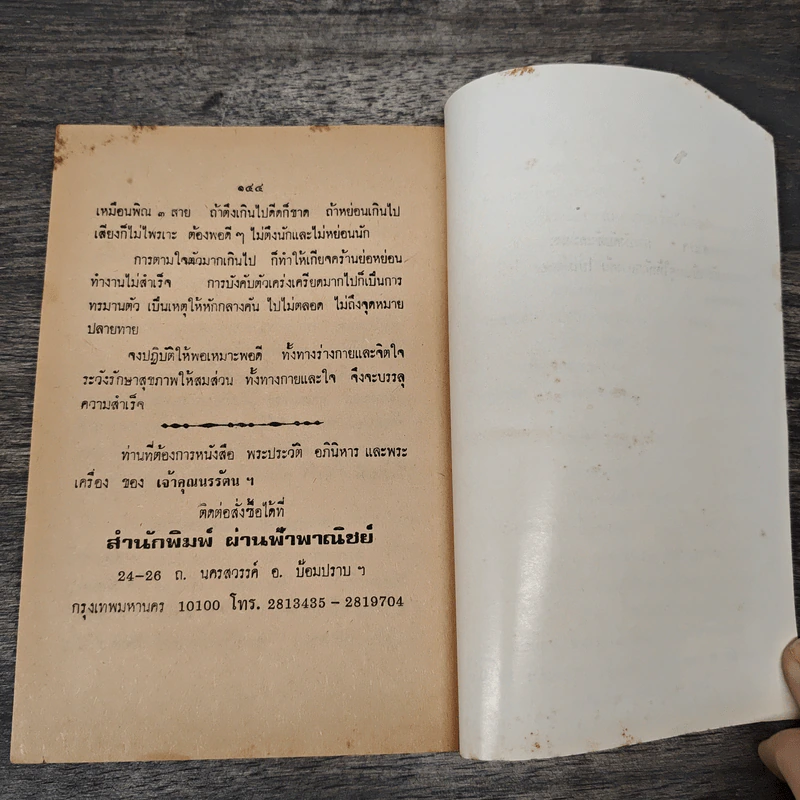 ๑๔๔
เหมือนพิณ ๓ สาย ถ้าตึงเกินไปดีดก็ขาด ถ้าหย่อนเกินไป
เสียงก็ไม่ไพรเาะ ต้องพอดี ๆ ไม่ตึงนักและไม่หย่อนนัก
การตามใจตัวมากเกินไป ก็ทำให้เกียจคร้านย่อหย่อน
ทำงานไม่สำเร็จ การบังคับตัวเคร่งเครียดมากไปก็เป็นการ
ทรมานตัว เป็นเหตุให้หักกลางคัน ไปไม่ตลอด ไม่ถึงจุดหมาย
ปลายทาย
จงปฏิบัติให้พอเหมาะพอดี ทั้งทางร่างกายและจิตใจ
ระวังรักษาสุขภาพให้สมส่วน ทั้งทางกายและใจ จึงจะบรรลุ
ความสำเร็จ
ท่านที่ต้องการหนังสือ พระประวัติ อภินิหาร และพระ
เครื่อง ของ เจ้าคุณนรรัตน ฯ
ติดต่อสั่งซื้อได้ที่
สำนักพิมพ์ ผ่านฟ้าพาณิชย์
24-26 ถ. นครสวรรค์ อ. ป้อมปราบ ฯ
กรุงเทพมหานคร 10100 โทร. 2813435 - 2819704